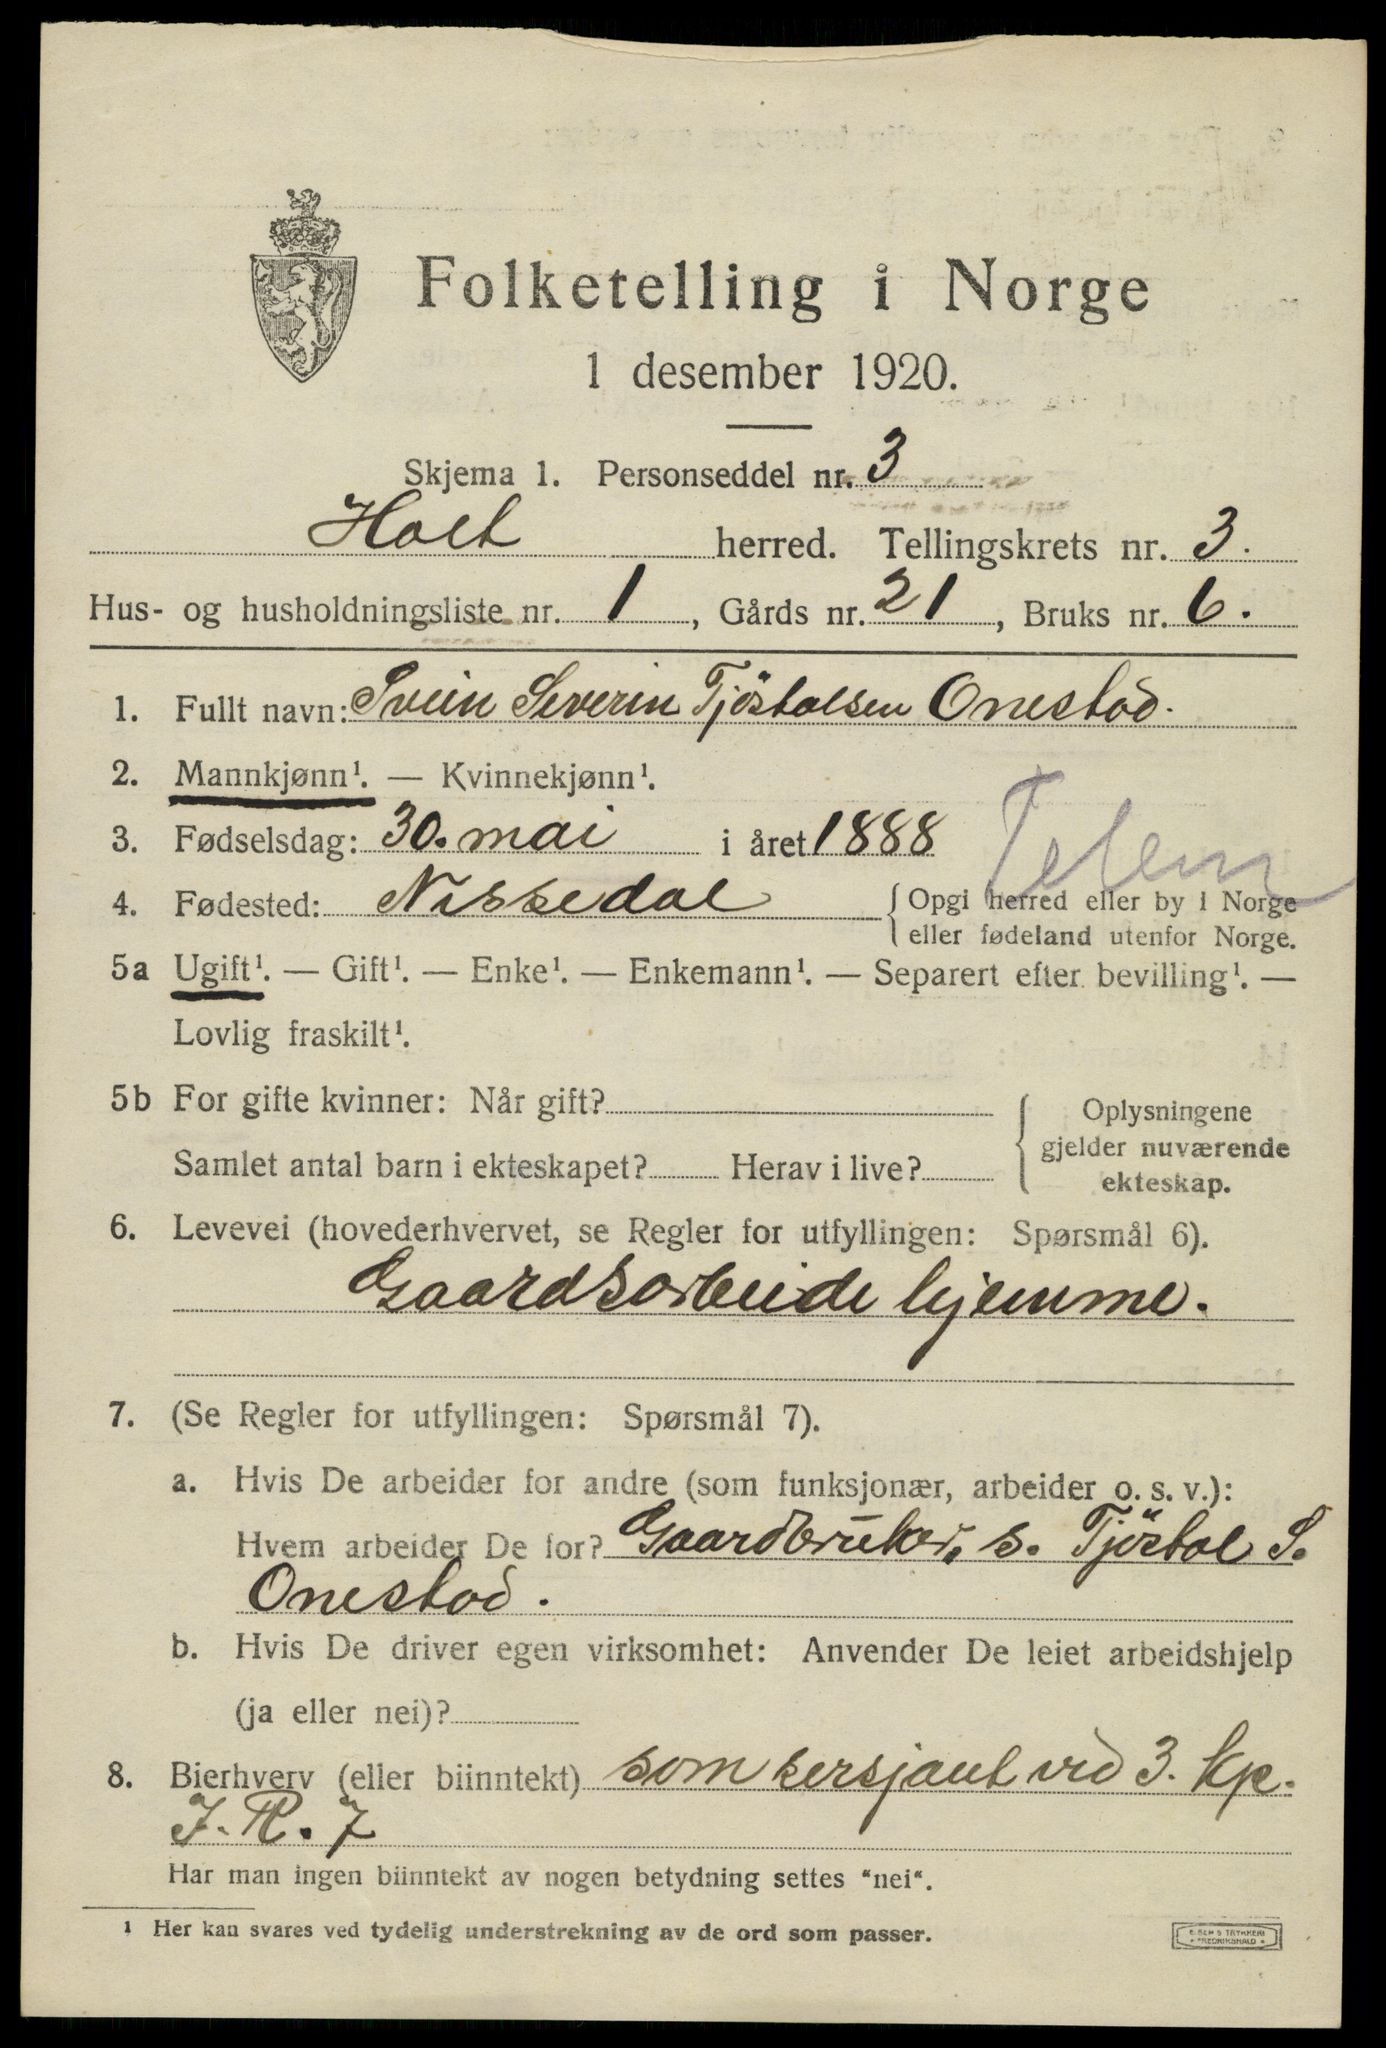 Folketelling i Norge
1 desember 1920.
Skjema 1. Personseddel nr. 3
Holt herred. Tellingskrets nr. 3.
Hus- og husholdningsliste nr. 1, Gårds nr. 21, Bruks nr. 6.
1. Fullt navn: Svein Severin Tjöstolsen Onestad.
2. Mannkjønn¹. — Kvinnekjønn¹.
3. Fødselsdag: 30. mai i året 1888
Telem
4. Fødested: Nissedal { Opgi herred eller by i Norge
eller fødeland utenfor Norge.
5a Ugift¹. — Gift¹. — Enke¹. — Enkemann¹. — Separert efter bevilling¹. —
Lovlig fraskilt¹.
5b For gifte kvinner: Når gift?
Samlet antal barn i ekteskapet? Herav i live?
{ Oplysningene
gjelder nuværende
ekteskap.
6. Levevei (hovederhvervet, se Regler for utfyllingen: Spørsmål 6).
Gaardsarbeide hjemme.
7. (Se Regler for utfyllingen: Spørsmål 7).
a. Hvis De arbeider for andre (som funksjonær, arbeider o. s. v.):
Hvem arbeider De for? Gaardbruker, s. Tjöstol S.
Onestad.
b. Hvis De driver egen virksomhet: Anvender De leiet arbeidshjelp
(ja eller nei)?
8. Bierhverv (eller biinntekt) som sersjant ved 3. Kp.
I. R. 7
Har man ingen biinntekt av nogen betydning settes "nei".
¹ Her kan svares ved tydelig understrekning av de ord som passer.